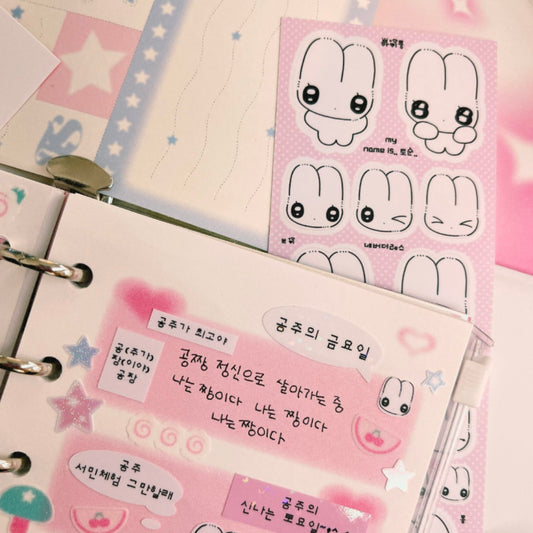 my
name is.. 토순..
네버더레스
공주의 금요일
공주가 최고야
공(주기)
짱(이야)
공짱
공짱 정신으로 살아가는 중
나는 짱이다 나는 짱이다
나는 짱이다
공주
서민체험 그만할래
공주의
신나는 토요일~